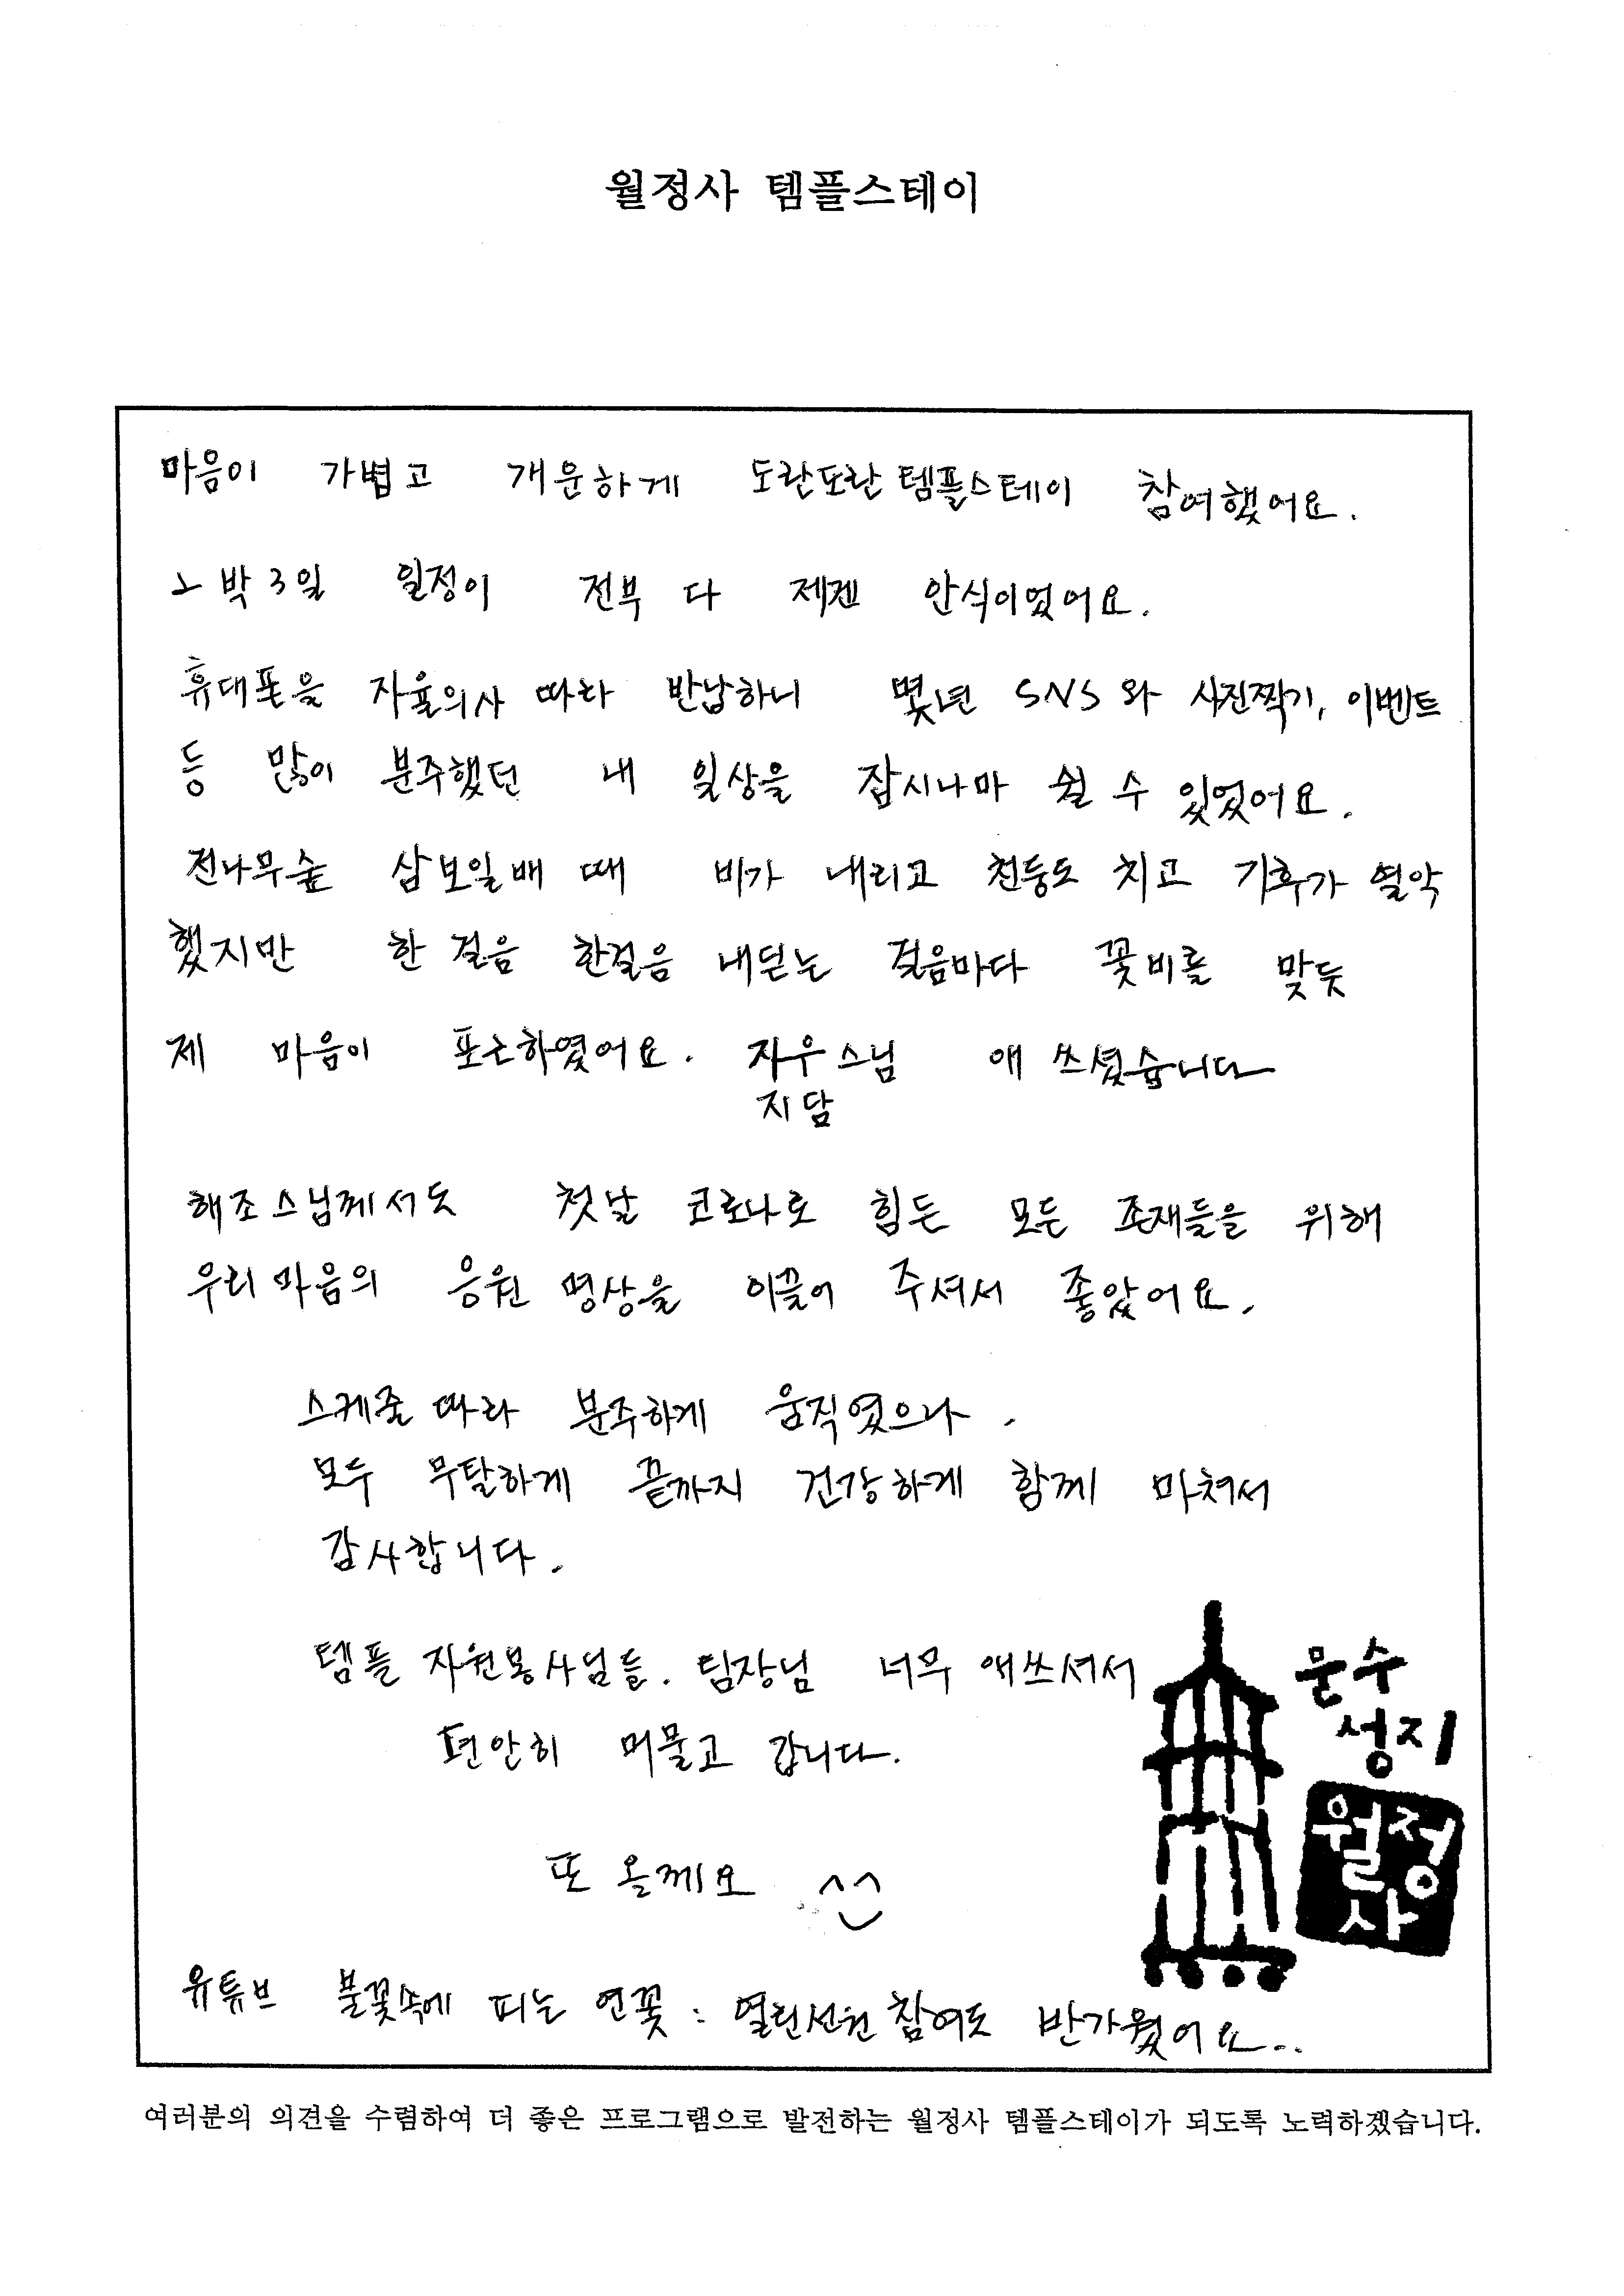 월정사 템플스테이
마음이 가볍고 개운하게 도란도란 템플스테이 참여했어요.
2박3일 일정이 전부 다 제겐 안식이었어요.
휴대폰을 자율의사 따라 반납하니 몇년 SNS와 사진찍기, 이벤트
등 많이 분주했던 내 일상을 잠시나마 쉴 수 있었어요.
전나무숲 삼보일배 때 비가 내리고 천둥도 치고 기후가 열악
했지만 한 걸음 한걸음 내딛는 걸음마다 꽃비를 맞듯
제 마음이 포근하였어요. 자우스님 애 쓰셨습니다
지담
해조스님께서도 첫날 코로나로 힘든 모든 존재들을 위해
우리 마음의 응원 명상을 이끌어 주셔서 좋았어요.
스케줄 따라 분주하게 움직였으나.
모두 무탈하게 끝까지 건강하게 함께 마쳐서
감사합니다.
템플 자원봉사님들. 팀장님 너무 애쓰셔서
편안히 머물고 갑니다.
또 올께요 ^^
문수
성지
월정
사
유튜브 불꽃속에 피는 연꽃 : 열린선원 참여도 반가웠어요..
여러분의 의견을 수렴하여 더 좋은 프로그램으로 발전하는 월정사 템플스테이가 되도록 노력하겠습니다.